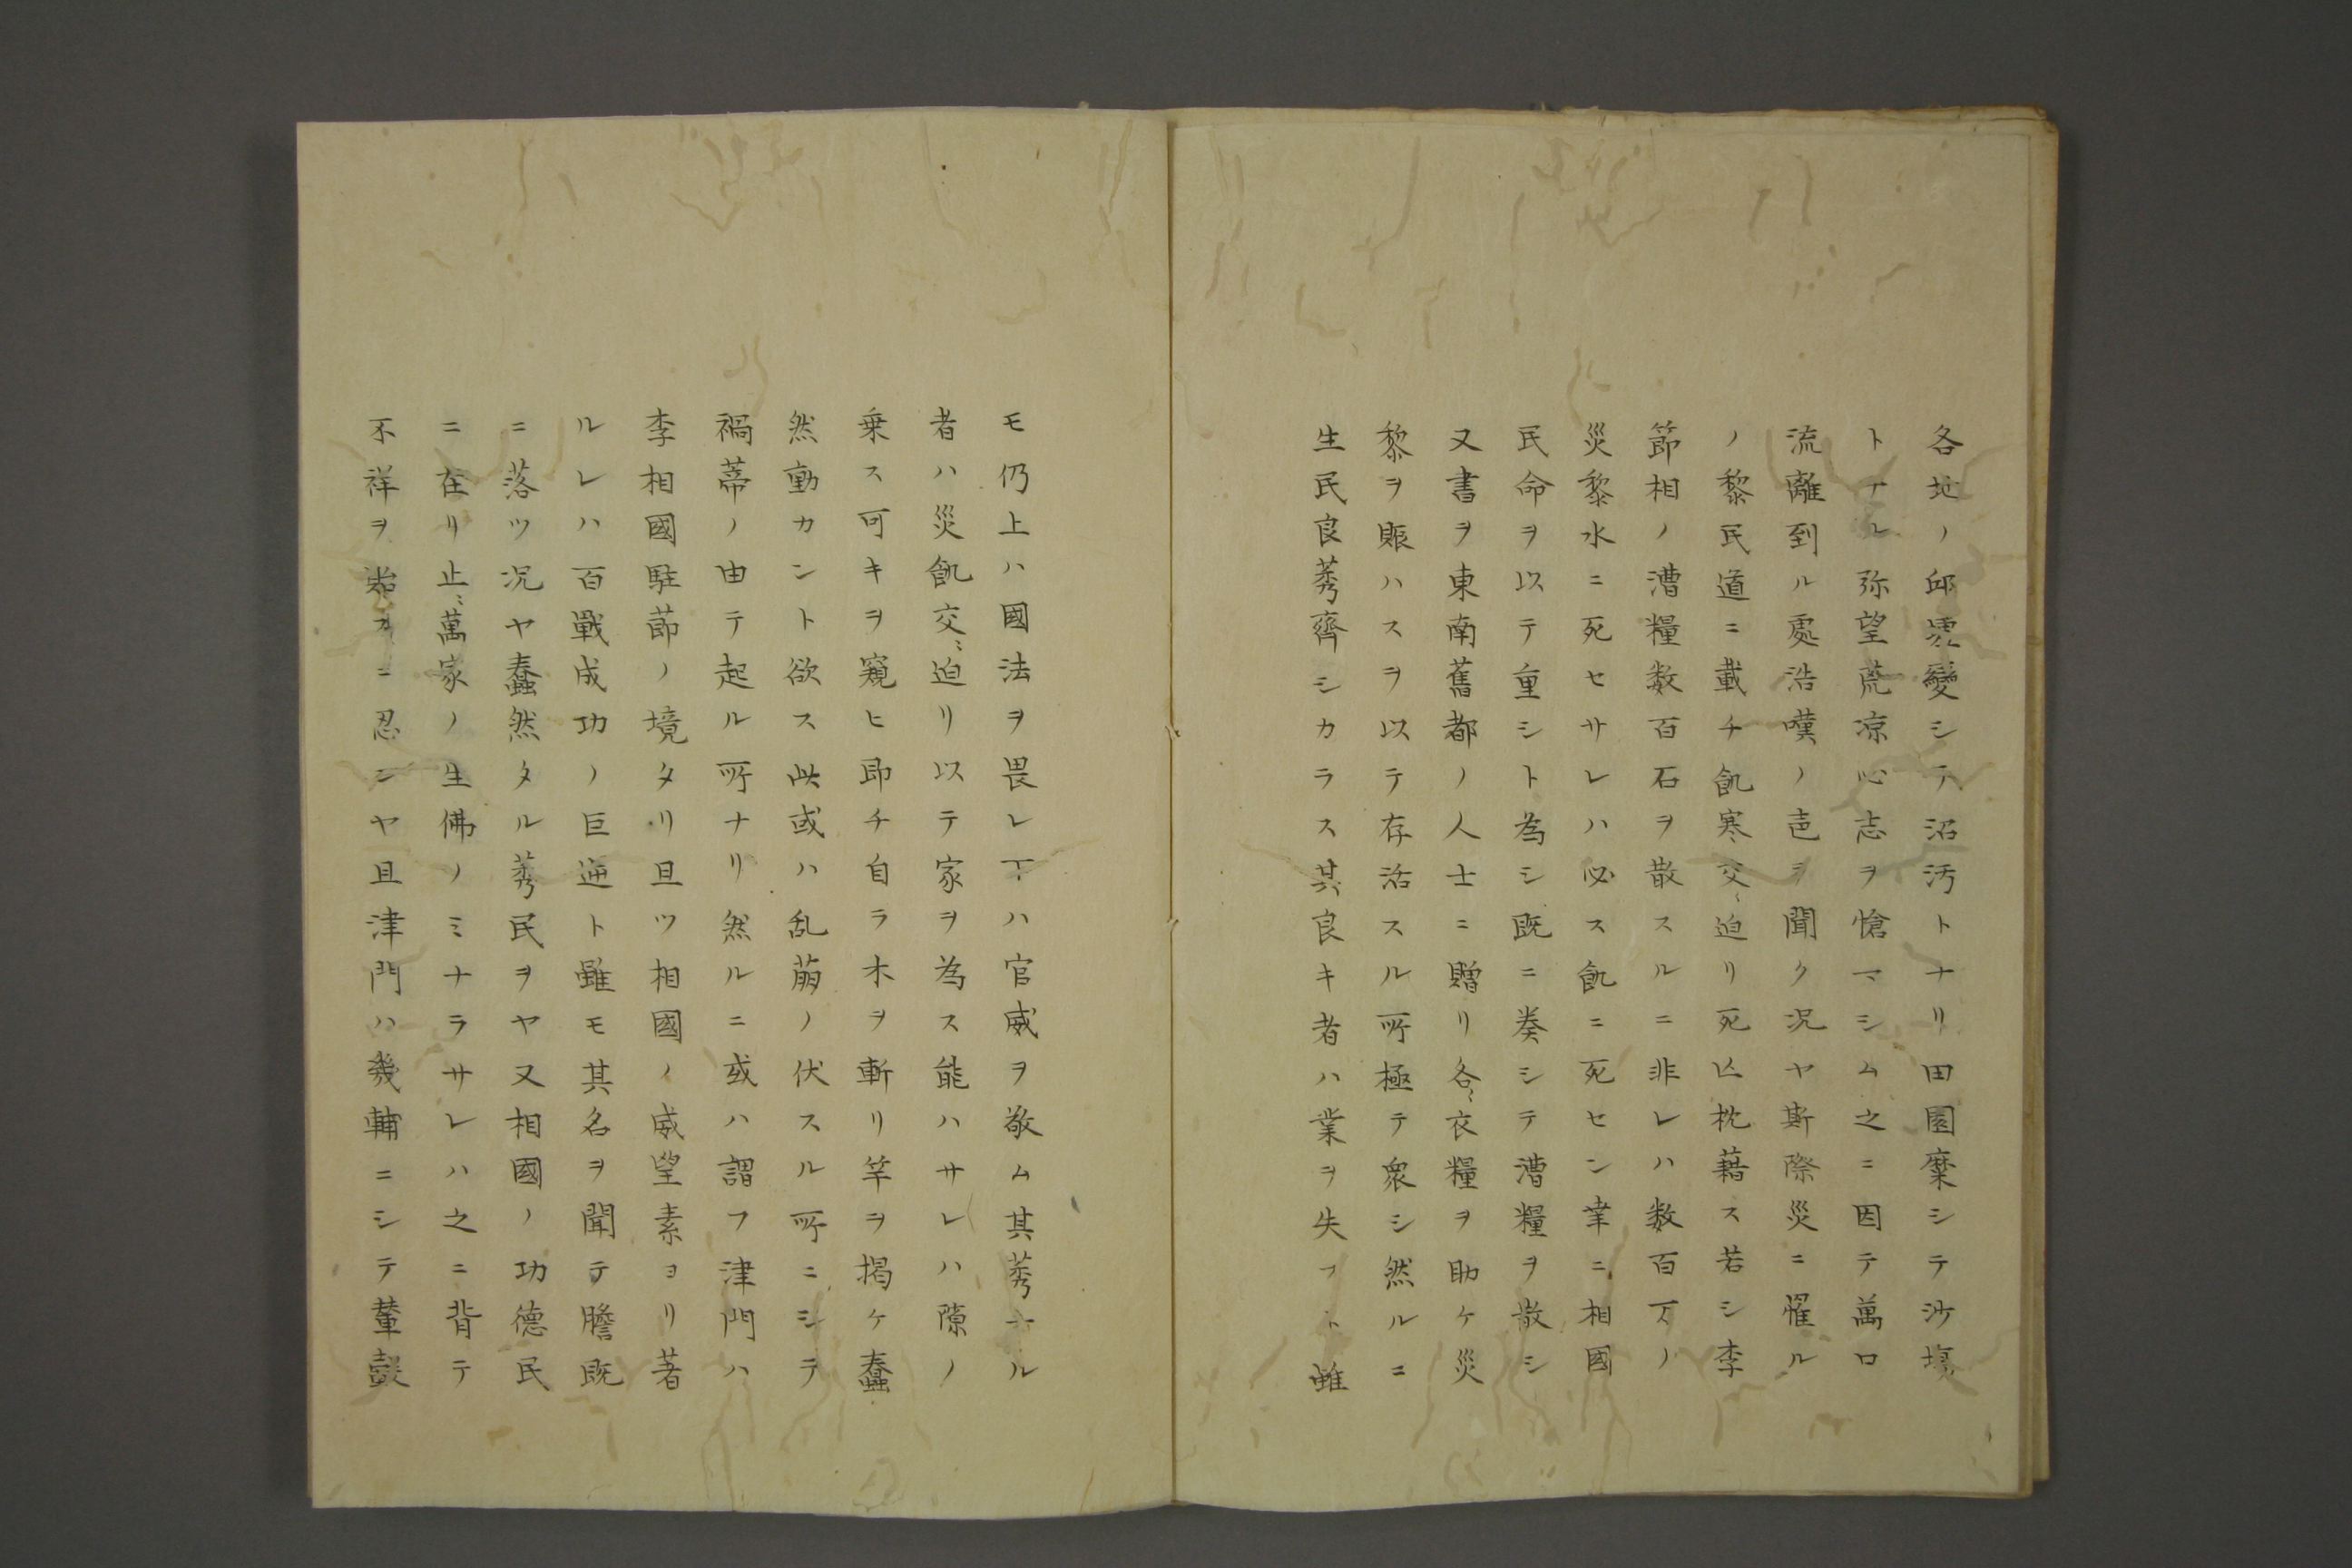 各地ノ邱墟變シテ沼汚トナリ田園糜シテ沙塲
トナル弥望荒涼心志ヲ愴マシム之ニ因テ萬口
流離到ル處浩嘆ノ声ヲ聞ク況ヤ斯際災ニ罹ル
ノ黎民道ニ載チ飢寒交〻迫リ死亡枕藉ス若シ李
節相ノ漕糧数百石ヲ散スルニ非レハ数百万ノ
災黎水ニ死セサレハ必ス飢ニ死セン幸ニ相國
民命ヲ以テ重シト為シ既ニ奏シテ漕糧ヲ散シ
又書ヲ東南舊都ノ人士ニ贈リ各〻衣糧ヲ助ケ災
黎ヲ賑ハスヲ以テ存活スル所極テ衆シ然ルニ
生民良莠齊シカラス其良キ者ハ業ヲ失フト雖
モ仍上ハ國法ヲ畏レ下ハ官威ヲ敬ム其莠ナル
者ハ災飢交〻迫リ以テ家ヲ為ス能ハサレハ隙ノ
乗ス可キヲ窺ヒ即チ自ラ木ヲ斬リ竿ヲ揭ケ蠢
然動カント欲ス此或ハ乱萠ノ伏スル所ニシテ
禍蒂ノ由テ起ル所ナリ然ルニ或ハ謂フ津門ハ
李相國駐節ノ境タリ且ツ相國ノ威望素ヨリ著
ルレハ百戰成功ノ巨逆ト雖モ其名ヲ聞テ膽既
ニ落ツ況ヤ蠢然タル莠民ヲヤ又相國ノ功徳民
ニ在リ止〻萬家ノ生佛ノミナラサレハ之ニ背テ
不祥ヲ ニ忍ンヤ且津門ハ幾輔ニシテ輦轂